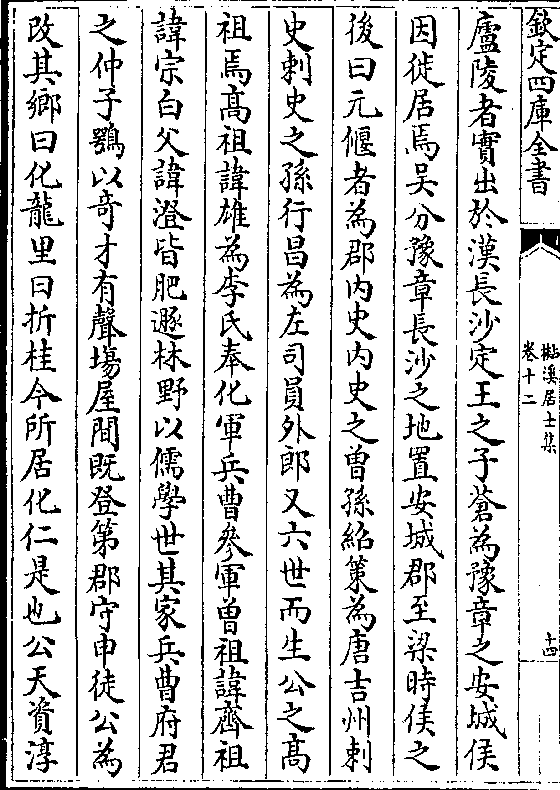 欽定四庫全書
苕溪居士集
卷十二
十四
廬陵者實出於漢長沙定王之子蒼為豫章之安城侯
因徙居焉吳分豫章長沙之地置安城郡至梁時侯之
後曰元偃者為郡內史內史之曾孫紹策為唐吉州刺
史刺史之孫行昌為左司員外郎又六世而生公之高
祖焉高祖諱雄為李氏奉化軍兵曹參軍曾祖諱齊祖
諱宗白父諱澄皆肥遯林野以儒學世其家兵曹府君
之仲子鶚以竒才有聲塲屋間既登第郡守申徒公為
改其鄉曰化龍里曰折桂今所居化仁是也公天資淳